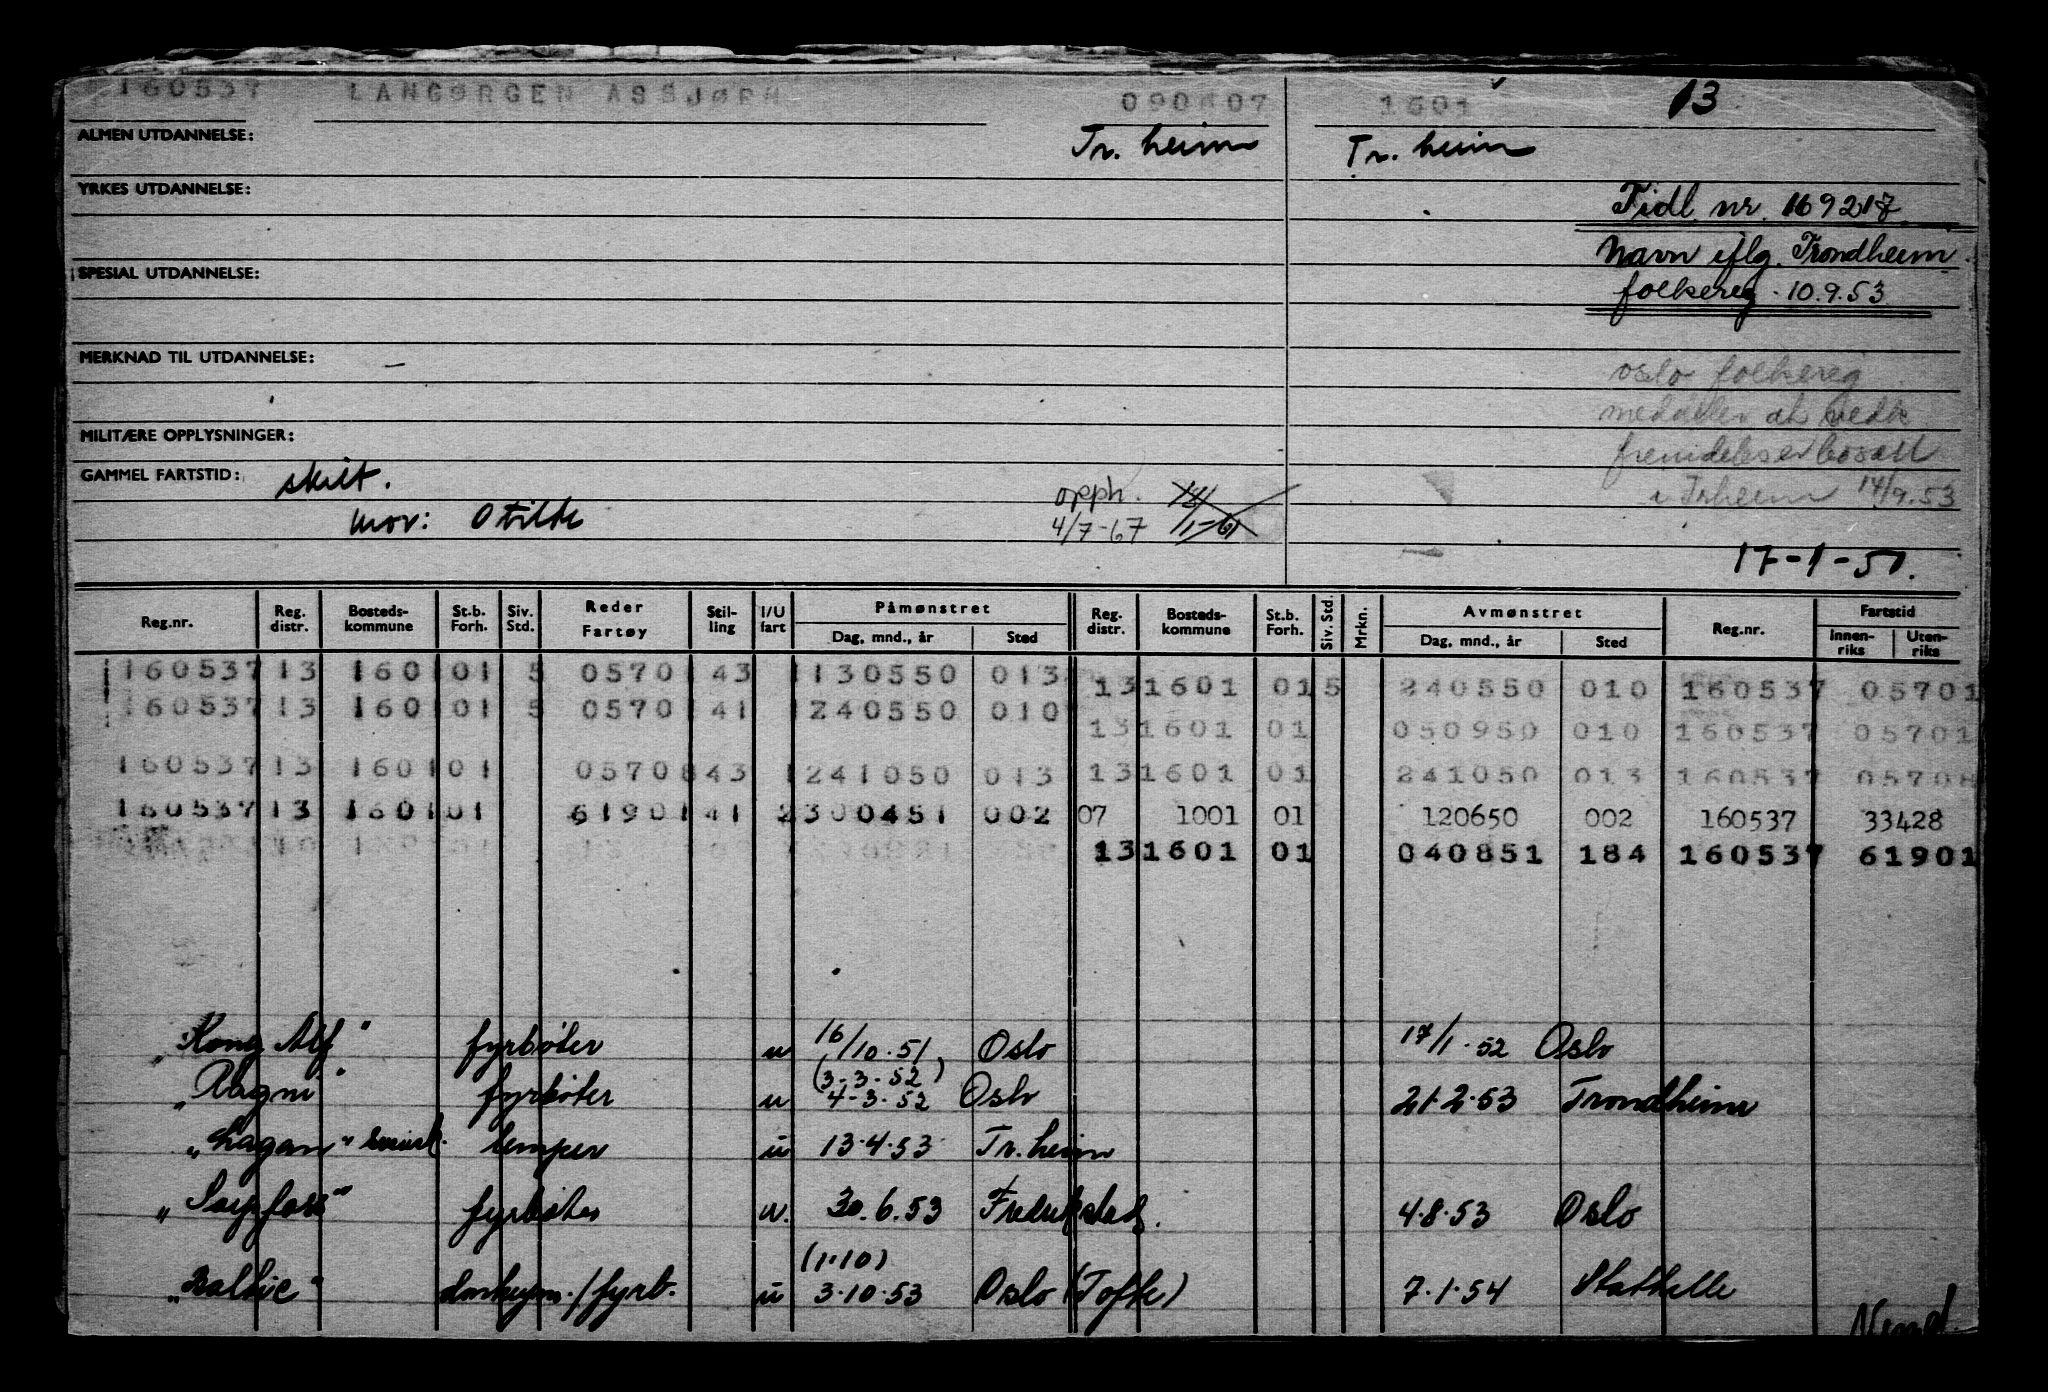 160537 LANGØRGEN ASBJØRN 090607 1601 13
ALMEN UTDANNELSE: Tr. heim Tr. heim
YRKES UTDANNELSE:
Tidl. nr. 169217
Navn iflg. Trondheim
SPESIAL UTDANNELSE:
folkereg. 10.9.53
MERKNAD TIL UTDANNELSE:
oslo folkereg
meddeler at vedk
MILITÆRE OPPLYSNINGER:
fremdeles er bosatt
GAMMEL FARTSTID: skilt.
i Trheim 14/9.53
opph.
mor: Otilie 4/7-67
17-1-51.
Reg.nr. Reg. distr. Bosteds-kommune St.b. Forh. Siv. Std. Reder Fartøy Stil-ling I/U fart Påmønstret Dag, mnd., år Sted Reg. distr. Bosteds-kommune St.b. Forh. Siv. Std. Mrkn. Avmønstret Dag, mnd., år Sted Reg.nr. Fartstid Innen-riks Uten-riks
160537 13 1601 01 5 05701 43 1 130550 013
13 1601 01 5 240550 010 160537 05701
160537 13 1601 01 5 05701 41 1 240550 010
13 1601 01 050950 010 160537 05701
160537 13 1601 01 05708 43 1 241050 013 13 1601 01 241050 013 160537 05708
160537 13 1601 01 61901 41 2 300451 002 07 1001 01 120650 002 160537 33428
13 1601 01 040851 184 160537 61901
"Kong Alf" fyrbøter u 16/10.51 Oslo 17/1.52 Oslo
(3-3-52)
"Ragni" fyrbøter u 4-3-52 Oslo 21.2.53 Trondheim
"Lagan" lemper u 13.4.53 Tr. heim
fyrbøter u. 30.6.53 Fredrikstad. 4.8.53 Oslo
(1.10)
"Baltic" donkeym./fyrb. u 3.10.53 Oslo (Tofte) 7.1.54 Stathelle